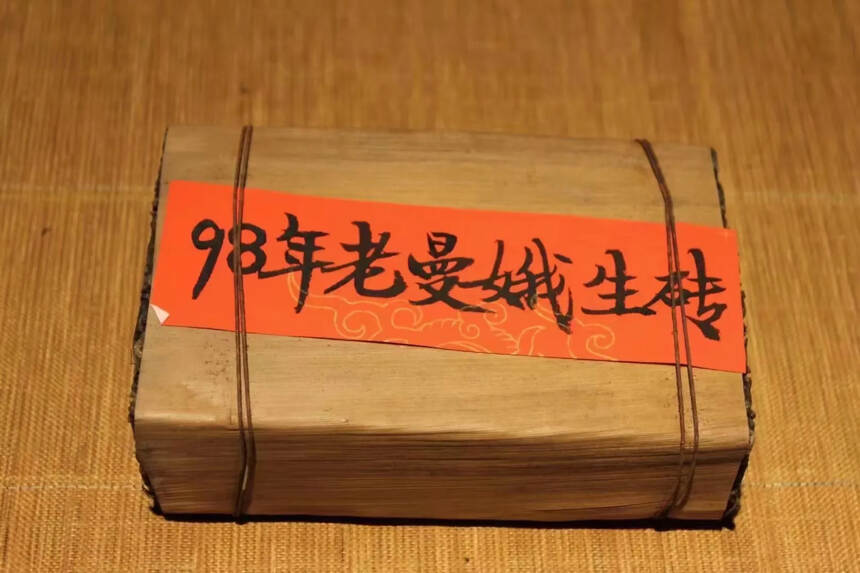 98年老曼娥生砖